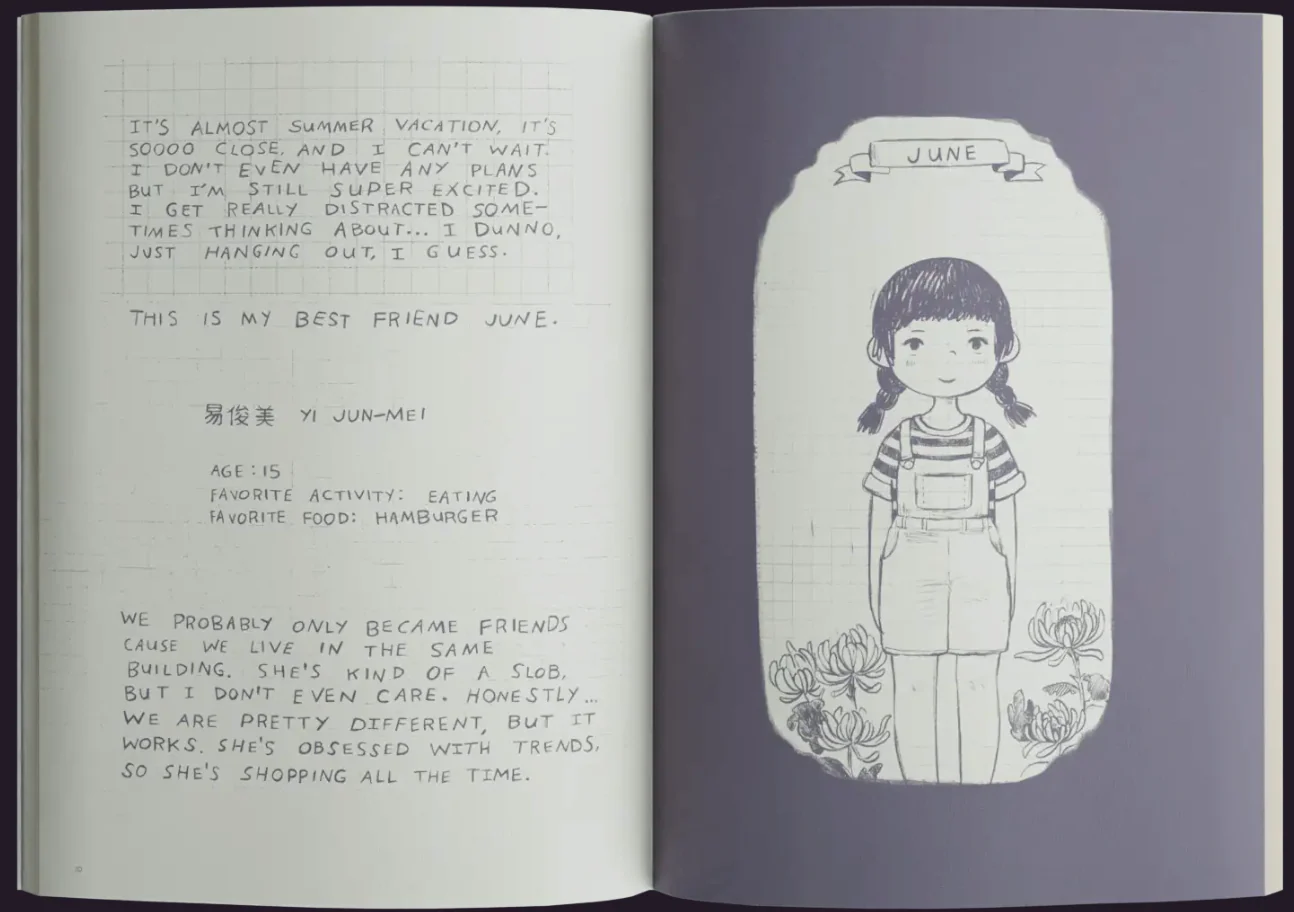 IT'S ALMOST SUMMER VACATION, IT'S
SOOOO CLOSE, AND I CAN'T WAIT.
I DON'T EVEN HAVE ANY PLANS
BUT I'M STILL SUPER EXCITED.
I GET REALLY DISTRACTED SOME-
TIMES THINKING ABOUT... I DUNNO,
JUST HANGING OUT, I GUESS.
THIS IS MY BEST FRIEND JUNE.
易俊美 YI JUN-MEI
AGE: 15
FAVORITE ACTIVITY: EATING
FAVORITE FOOD: HAMBURGER
WE PROBABLY ONLY BECAME FRIENDS
CAUSE WE LIVE IN THE SAME
BUILDING. SHE'S KIND OF A SLOB,
BUT I DON'T EVEN CARE. HONESTLY...
WE ARE PRETTY DIFFERENT, BUT IT
WORKS. SHE'S OBSESSED WITH TRENDS,
SO SHE'S SHOPPING ALL THE TIME.
JUNE